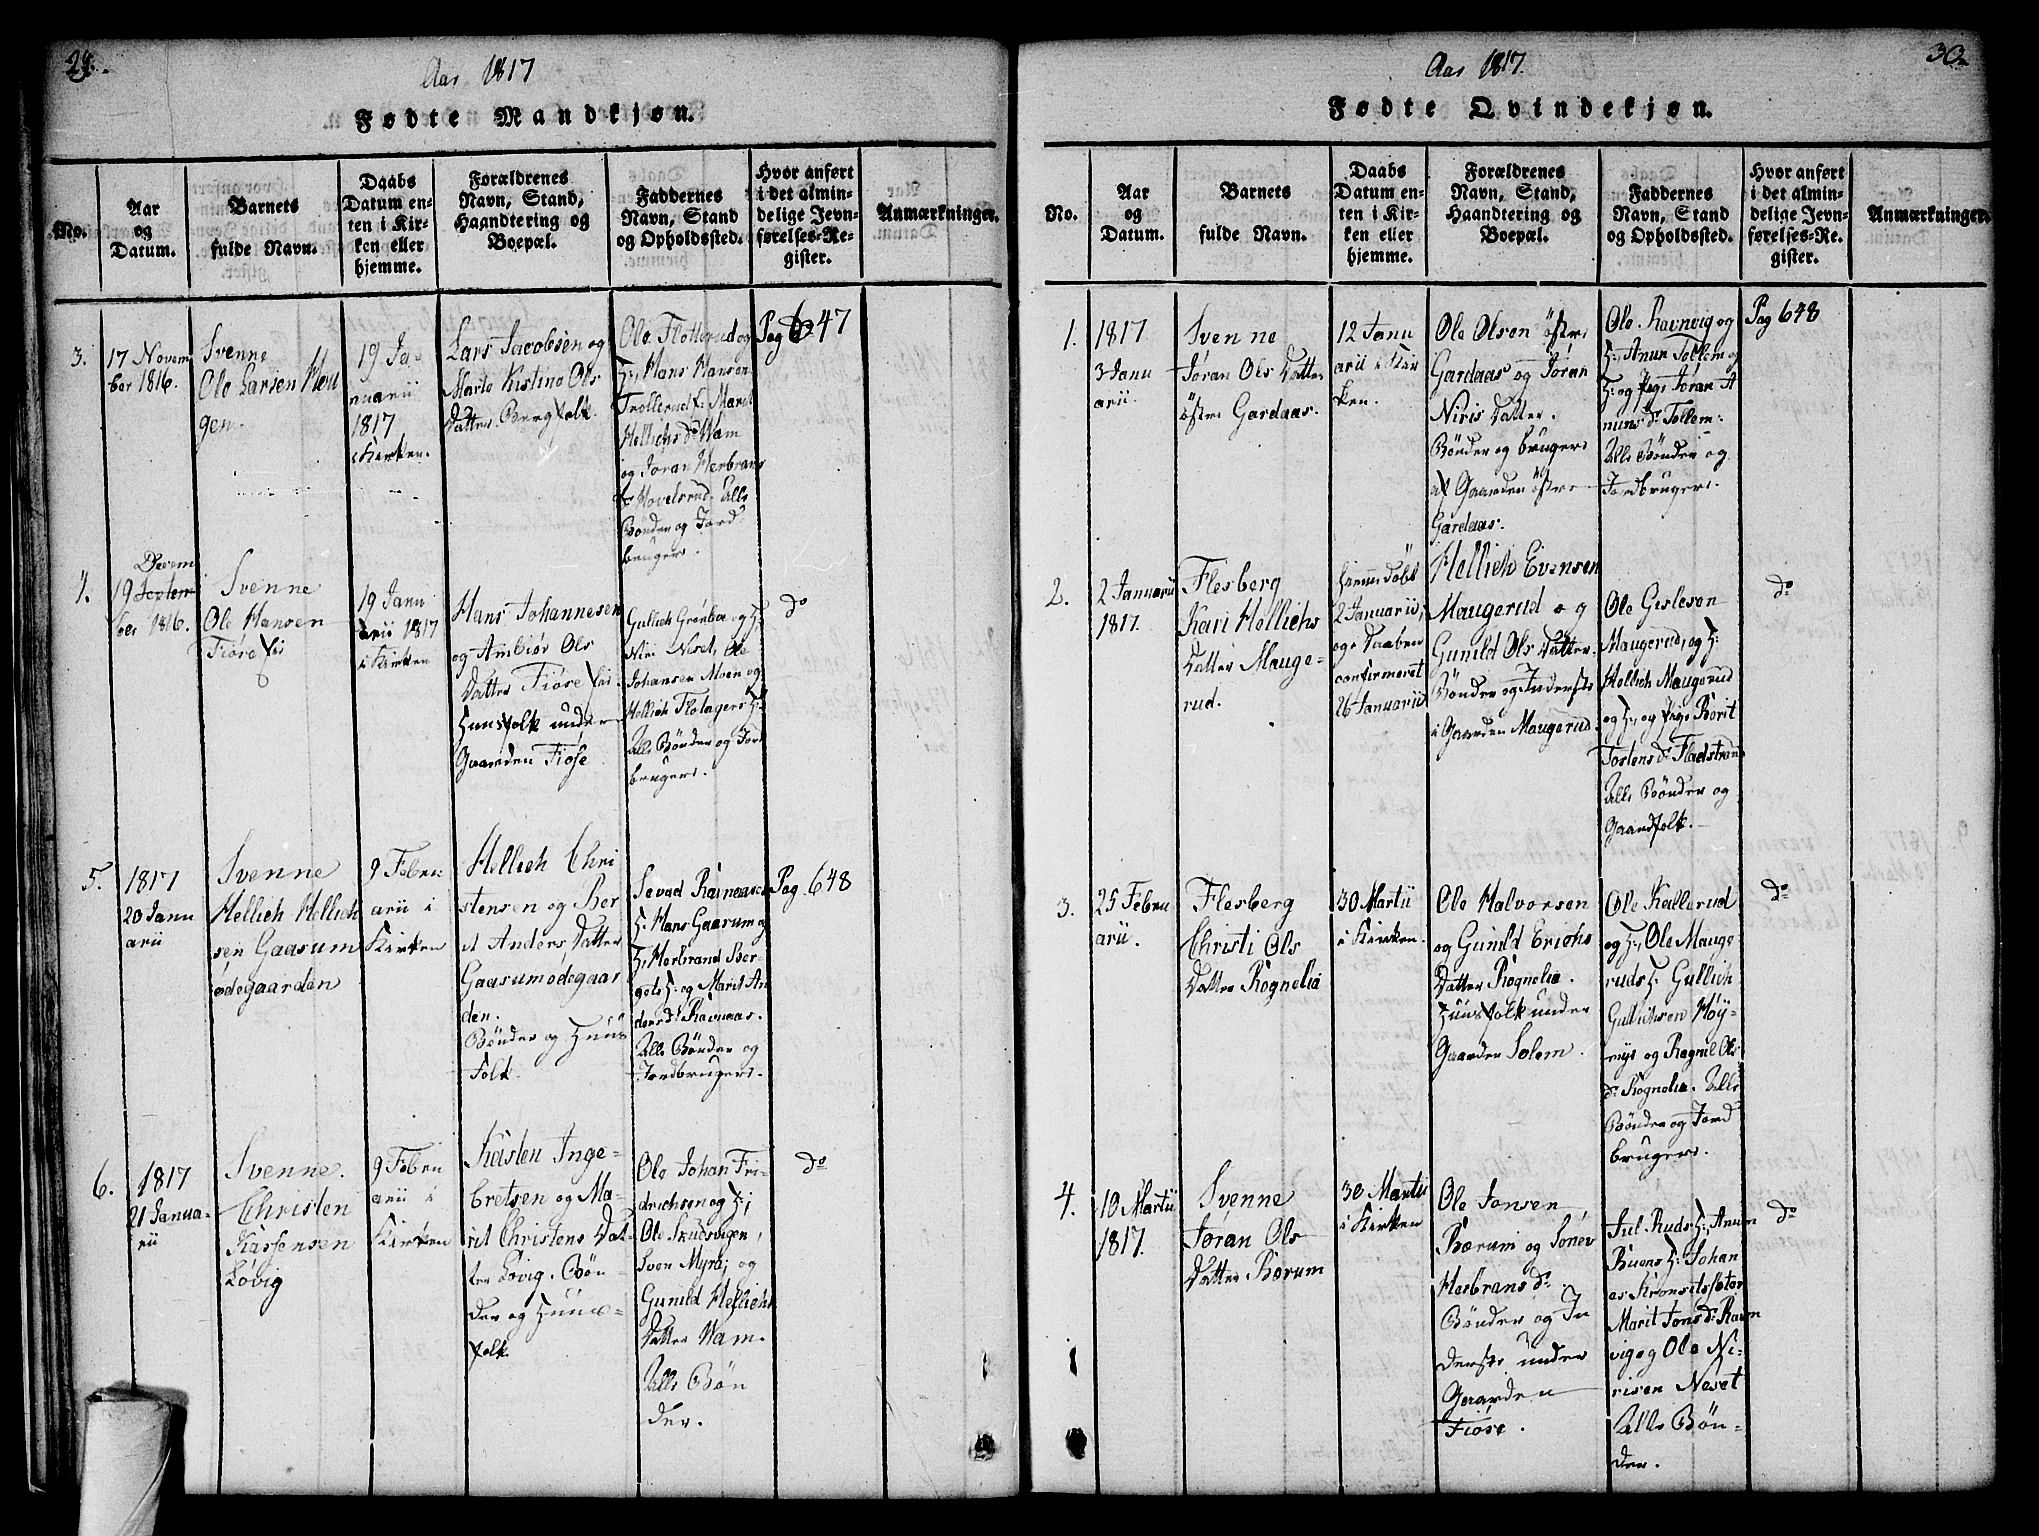 29.
Aar 1817
Fødte Mandkjøn.
No.
Aar
og
Datum.
Barnets
fulde Navn.
Daabs
Datum en-
ten i Kir-
ken eller
hjemme.
Forældrenes
Navn, Stand,
Haandtering og
Boepæl.
Faddernes
Navn, Stand
og Opholdssted.
Hvor anført
i det almin-
delige Jevn-
førelses-Re-
gister.
Anmærkninger.
3.
17 Novem
ber 1816.
Svenne
Ole Larsen
gen.
19 Ja-
nuarii
1817
i Kirken.
Lars Jacobsen og
Marte Kistine Ols
Datter Berg folk.
Ole Flotterud og
H:, Hans Hansen
Trollerud f: Marit
Hellichs D: Wam
og Joran Herbrans
D Hovelsrud. Alle
Bönder og Jord
brugere.
Pag 647
4.
Decem
19 Septem
ber 1816.
Svenne
Ole Hansen
Fiöse fei
19 Janu
arii 1817
i Kirken
Hans Johannesen
og Ambiör Ols
Datter Fiöse fei.
Huusfolk under
Gaarden Fiöse.
Gullich Grönboe og H:
Niri Neset, Ole
Johansen Moen og
Hellich Flotagers H:
Alle Bönder og Jord
brugere.
do
5.
1817
20 Janu
arii
Svenne
Hellich Hellich
sen Gaasum
ødegaarden
9 Febru
arii i
Kirken
Hellich Chri
stensen og Ber
it Anders Datter
Gaasumødegaar
den.
Bönder og Huus
Folk.
Sevad Ravnaasen
H: Hans Gaasum og
H, Herbrand Ber-
gets H: og Marit An
ders D: Ravnaas.
Alle Bönder og
Jordbrugere.
Pag. 648
6.
1817
21 Janua-
rii
Svenne.
Christen
Kastensen
Lövig
9 Febru
arii i
Kirken
Kasten Inge-
bretsen og Ma-
rit Christens Dat-
ter Lövig. Bön-
der og Huus-
folk.
Ole Johan Fri-
drichsen og H;
Ole Skudsvigen,
Sven Myra, og
Gunild Hellichs
Datter Wam.
Alle Bön
der.
do
30.
Aar 1817.
Fødte Qvindekjøn.
No.
Aar
og
Datum.
Barnets
fulde Navn.
Daabs
Datum en-
ten i Kir-
ken eller
hjemme.
Forældrenes
Navn, Stand,
Haandtering og
Boepæl.
Faddernes
Navn, Stand
og Opholdssted.
Hvor anført
i det almin-
delige Jevn-
førelses-Re-
gister.
Anmærkninger.
1.
1817
3 Janu
arii.
Svenne
Jøran Ols Datter
östre Gardaas.
12 Janu
arii i Kir
ken.
Ole Olsen östre
Gardaas og Jøran
Niris Datter.
Bönder og brugere
af Gaarden östre
Gardaas.
Ole Ravnvig og
H:, Anun Tollem og
H: og Pige Jøran A
nuns D: Tollem:
Alle Bönder og
Jordbrugere.
Pag 648
2.
2 Januarii
1817.
Flesberg
Kari Hellichs
Datter Mauge-
rud.
hjemmedöbt
2 Januarii,
og Daaben
confirmeret
26 Januarii
Hellich Evensen
Maugerud og
Gunild Ols Datter.
Bönder og Inderste
i Gaarden Maugerud.
Ole Gislesen
Maugerud, og H:
Hellich Maugerud
og H:, og Pige Borit
Tostens D: Fladstrand
Alle Bönder og
Gaardfolk.
do
3.
25 Febru
arii.
Flesberg
Christi Ols
Datter Rognelia
30 Martii
i Kirken.
Ole Halvorsen
og Gunild Erichs
Datter Rognelia.
Huusfolk under
Gaarden Solem.
Ole Kallerud
og H:, Ole Mauge
ruds H: Gullich
Gullichsen Høy-
myr og Ragnil Ols
D: Rognelia. Alle
Bönder og Jord
brugere.
do
4.
10 Martii
1817.
Svenne
Jøran Ols
Datter Børum
30 Martii
i Kirken
Ole Jonsen
Børum og Sönev
Herbrans D:
Bönder og In
derste under
Gaarden
Fiöse.
Jul Ruds H: Anum
Buens H: Johan
as Kronsetsøter
Marit Jons D: Ravn
vig og Ole Ni-
risen Neset
Alle Bön-
der.
do